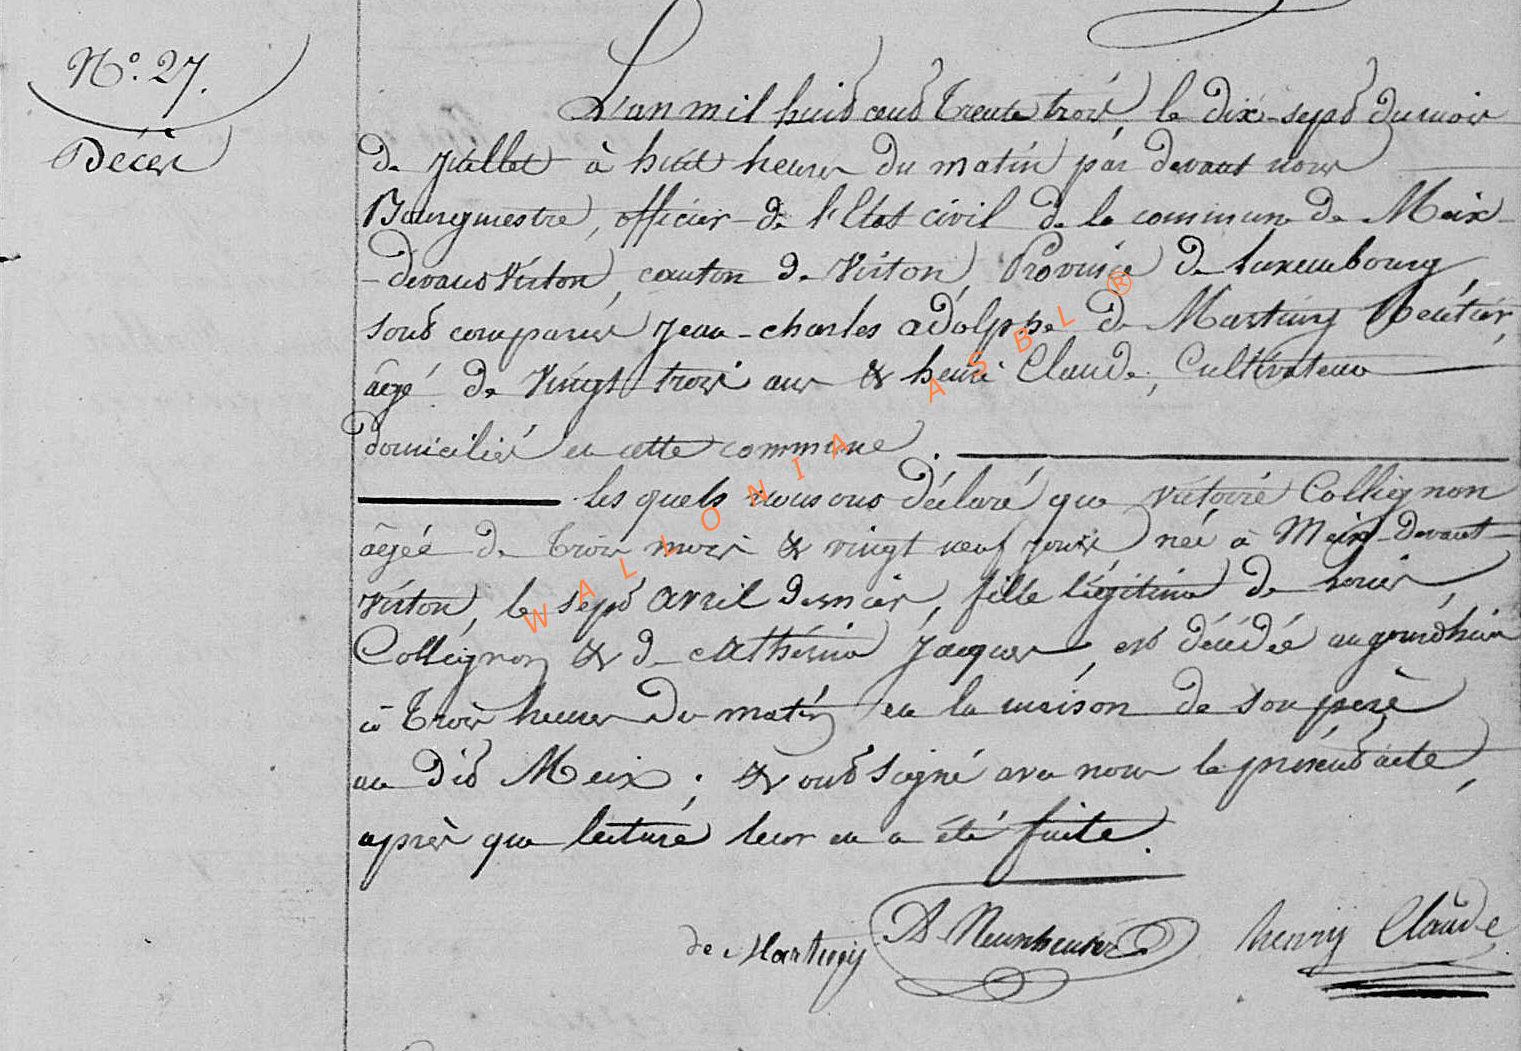 N.° 27.
Décès
L'an mil huit cent trente trois, le dix-sept du mois
de Juillet à huit heures du matin par devant nous
Bourgmestre, officier de l'Etat civil de la commune de Meix-
-devant Virton, canton de Virton, Province de Luxembourg,
sont comparus Jean-charles adolphe de Martiny Rentier,
âgé de vingt trois ans & henri Claude, Cultivateur
domiciliés en cette commune.
les quels nous ont déclaré que victoire Collignon
âgée de trois mois & vingt neuf jours née à Meix-devant-
Virton, le sept avril dernier, fille légitime de Louis,
Collignon & de cathérine Jacques, est décédée aujourd'hui
à trois heures du matin en la maison de son père
au dit Meix; & ont signé avec nous le présent acte,
après que lecture leur en a été faite.
de Martiny A Neunheuser henry Claude
WALLONIA ASBL ®